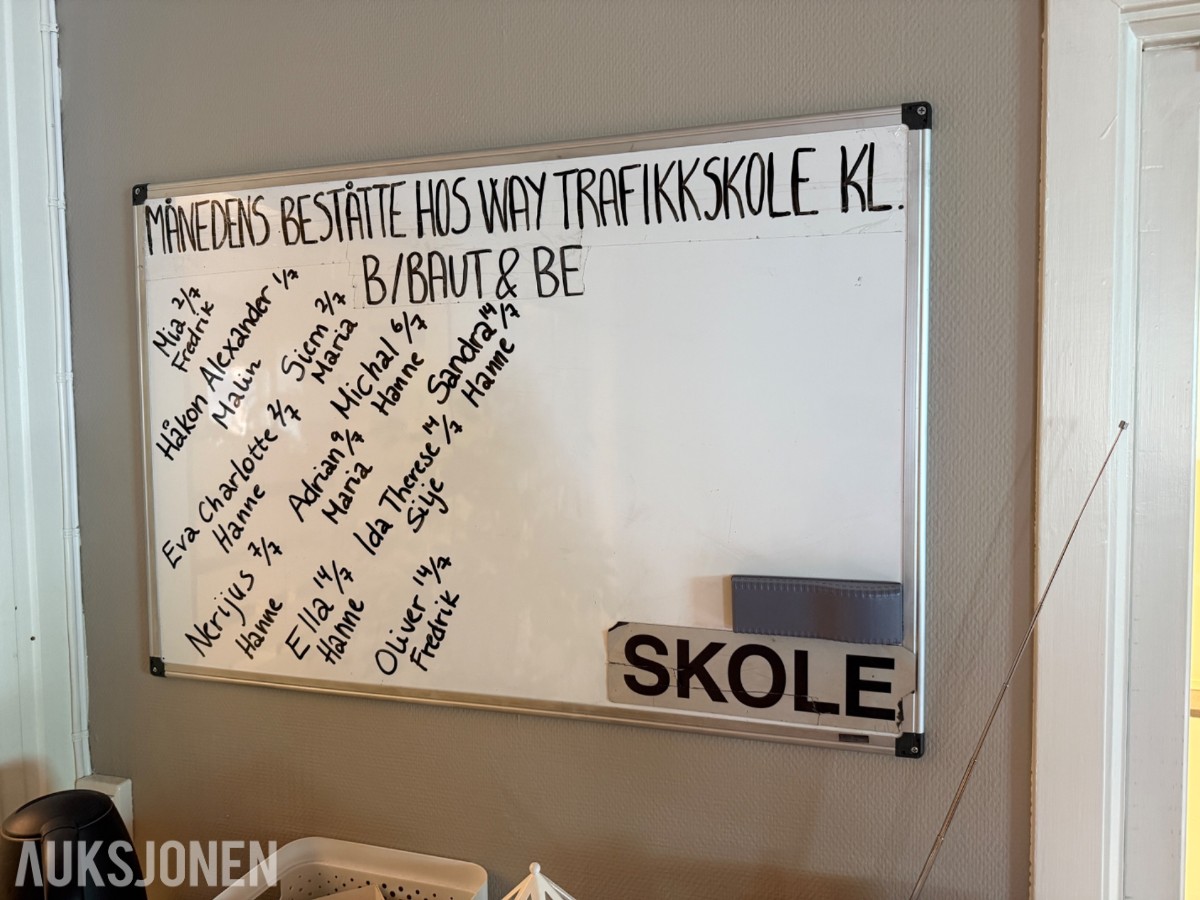 MÅNEDENS BESTÅTTE HOS WAY TRAFIKKSKOLE KL.
B/BAUT & BE
Mia 2/7
Fredrik
Håkon Alexander 1/7
Malin
Eva Charlotte 2/7
Hanne
Nerijus 7/7
Hanne
Siem 2/7
Maria
Michal 6/7
Hanne
Adrian 9/7
Maria
Ella 14/7
Hanne
Sandra 14/7
Hanne
Ida Therese 14/7
Silje
Oliver 14/7
Fredrik
SKOLE
AUKSJONEN